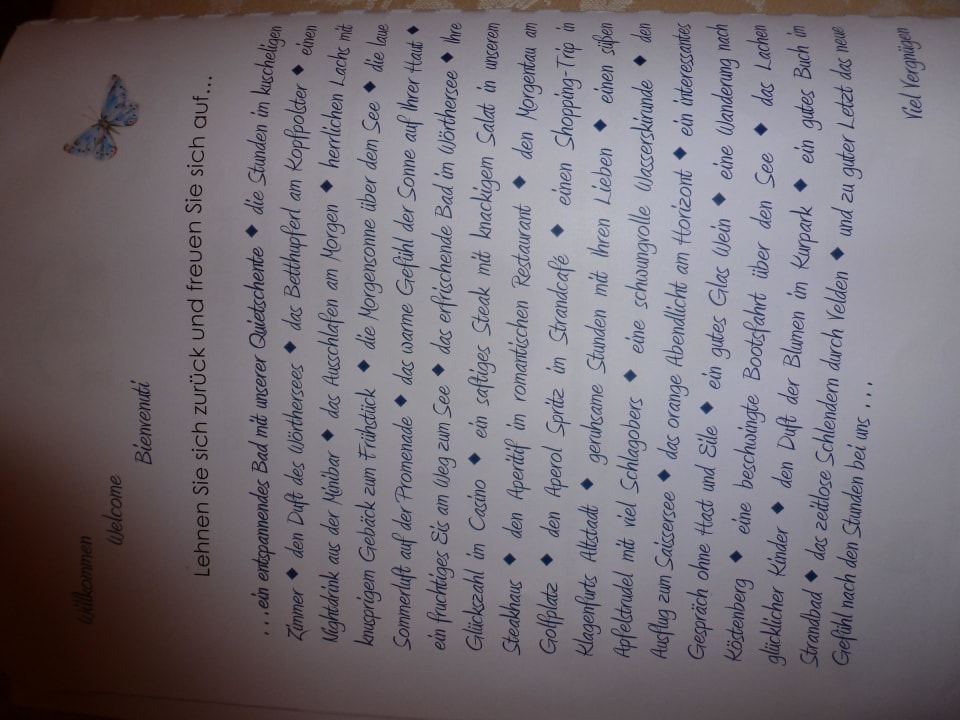 Willkommen
Welcome
Bienvenuti
Lehnen Sie sich zurück und freuen Sie sich auf...
...ein entspannendes Bad mit unserer Quietschente ◆ die Stunden im kuscheligen
Zimmer ◆ den Duft des Wörthersees ◆ das Betthupferl am Kopfpolster ◆ einen
Nightdrink aus der Minibar ◆ das Ausschlafen am Morgen ◆ herrlichen Lachs mit
knusprigem Gebäck zum Frühstück ◆ die Morgensonne über dem See ◆ die laue
Sommerluft auf der Promenade ◆ das warme Gefühl der Sonne auf Ihrer Haut ◆
ein fruchtiges Eis am Weg zum See ◆ das erfrischende Bad im Wörthersee ◆ Ihre
Glückszahl im Casino ◆ ein saftiges Steak mit knackigem Salat in unserem
Steakhaus ◆ den Aperitif im romantischen Restaurant ◆ den Morgentau am
Golfplatz ◆ den Aperol Spritz im Strandcafé ◆ einen Shopping-Trip in
Klagenfurts Altstadt ◆ geruhsame Stunden mit Ihren Lieben ◆ einen süßen
Apfelstrudel mit viel Schlagobers ◆ eine schwungvolle Wasserskirunde ◆ den
Ausflug zum Saissersee ◆ das orange Abendlicht am Horizont ◆ ein interessantes
Gespräch ohne Hast und Eile ◆ ein gutes Glas Wein ◆ eine Wanderung nach
Köstenberg ◆ eine beschwingte Bootsfahrt über den See ◆ das Lachen
glücklicher Kinder ◆ den Duft der Blumen im Kurpark ◆ ein gutes Buch im
Strandbad ◆ das zeitlose Schlendern durch Velden ◆ und zu guter Letzt das neue
Gefühl nach den Stunden bei uns ...
Viel Vergnügen